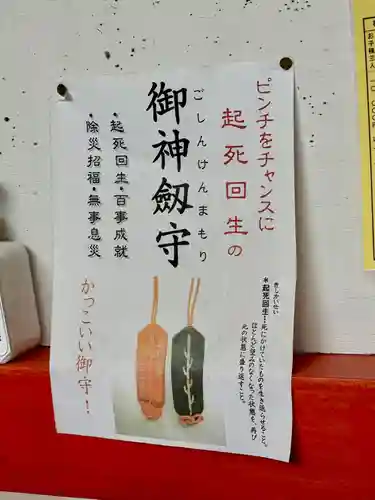 ピンチをチャンスに
起死回生の
ごしんけんまもり
御神劔守
・起死回生・百事成就
・除災招福・無事息災
かっこいい御守!
きしかいせい
*起死回生…死にかけていたものを生き返らせること。
ほとんど望みのなくなった状態を、再び
元の状態に盛り返すこと。